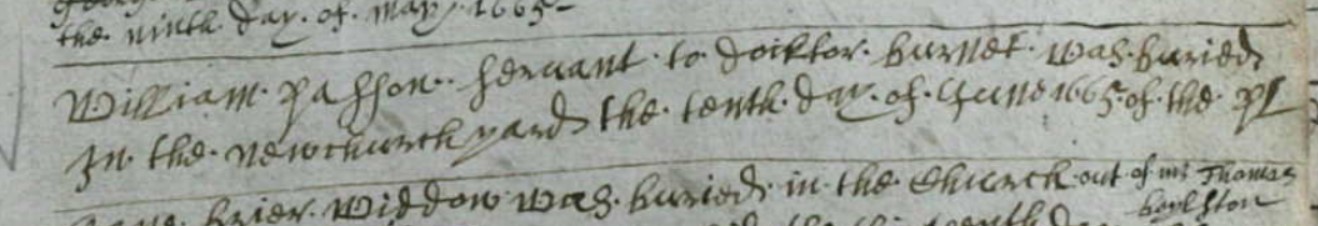 the ninth day. of. may. 1665
William. passon. servant. to. docktor. burnet. was. buried
In the. newchurch yard the. tenth. day. of. June 1665. of. the. pl
brier. widdow was. buried. in. the. Church out of mr Thomas
boylston